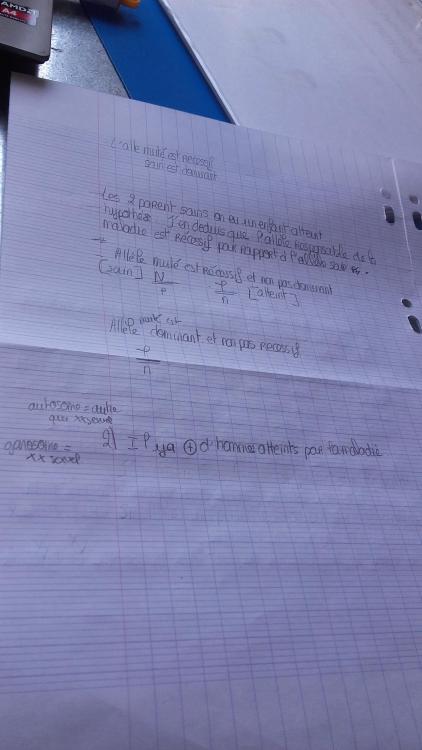 AMD
A4
L'alle muté est Recessif
sain est dominant
Les 2 parent sains on eu un enfant atteint
hypothèse J'en deduis que l'allèle Responsable de la
maladie est Récessif par rapport à l'allèle sain
Allèle muté est Récessif et non pas dominant
[sain] N [atteint]
n
muté est
Allèle dominant et non pas Recessif
n
autosome = autre
que xx sexuel
gonosome =
xx sexuel
2) Il y a + d'hommes atteints par la maladie